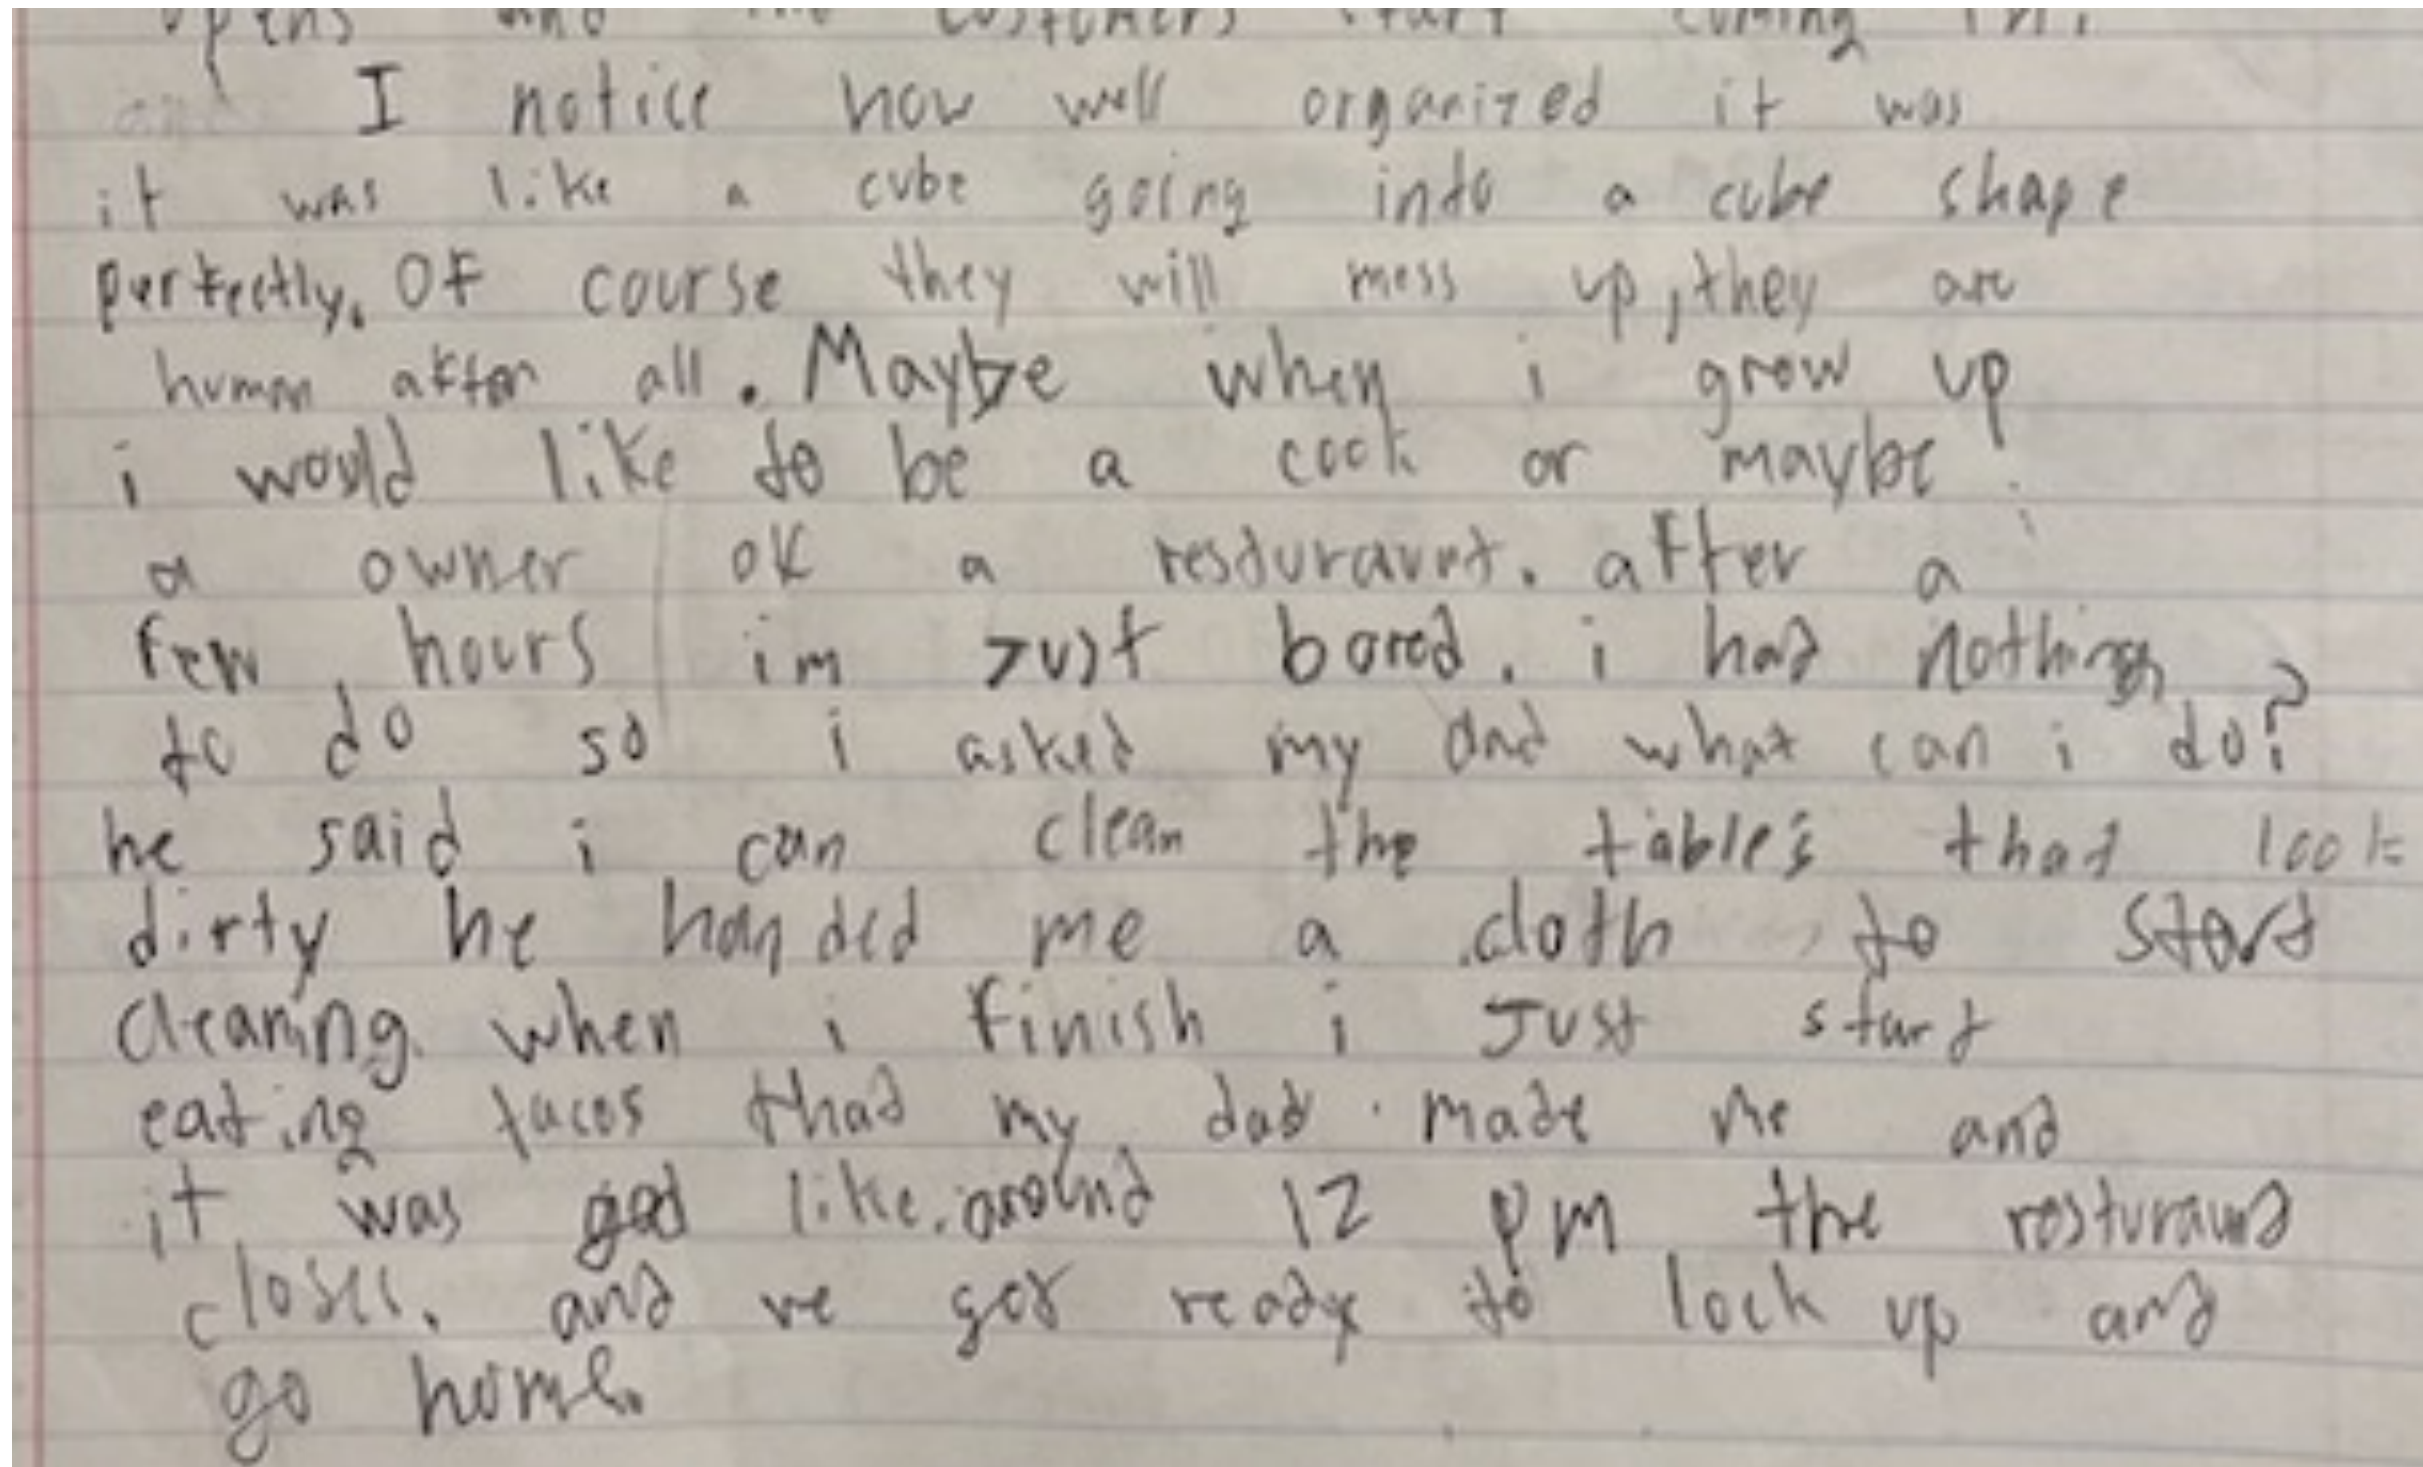 opens and the customers start coming in.
I notice how well organized it was
it was like a cube going into a cube shape
perfectly. Of course they will mess up, they are
human after all. Maybe when i grow up
i would like to be a cook or maybe
a owner of a resduraunt. after a
few hours im Just bored. i had nothing
to do so i asked my dad what can i do?
he said i can clean the tables that look
dirty he handed me a cloth to start
cleaning. when i finish i Just start
eating tacos that my dad made me and
it was good like. around 12 pm the resturaund
closes. and we get ready to lock up and
go home.